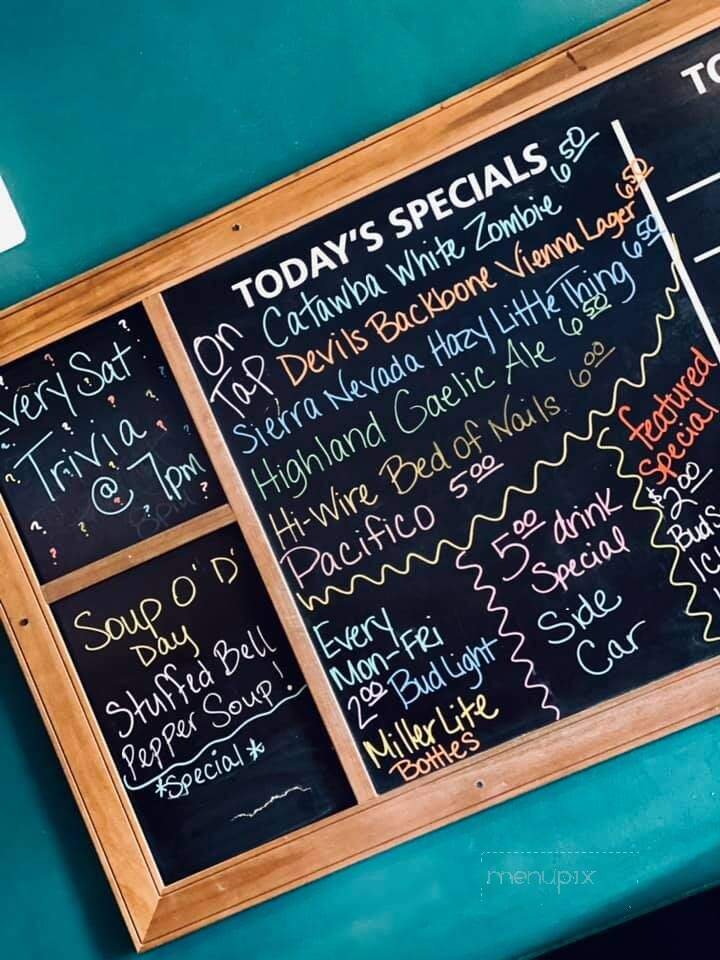 TODAY'S SPECIALS
On Tap
Catawba White Zombie 6.50
Devils Backbone Vienna Lager 6.50
Sierra Nevada Hazy Little Thing 6.50
Highland Gaelic Ale 6.50
Hi-Wire Bed of Nails 6.00
Pacifico 5.00
very Sat
Trivia
@ 7pm
Soup O' D'
Day
Stuffed Bell
Pepper Soup!
*Special*
Every
Mon-Fri
2.00 Bud Light
Miller Lite
Bottles
5.00 drink
Special
Side
Car
featured
Special
$2.00
Bud's
TO
menupix